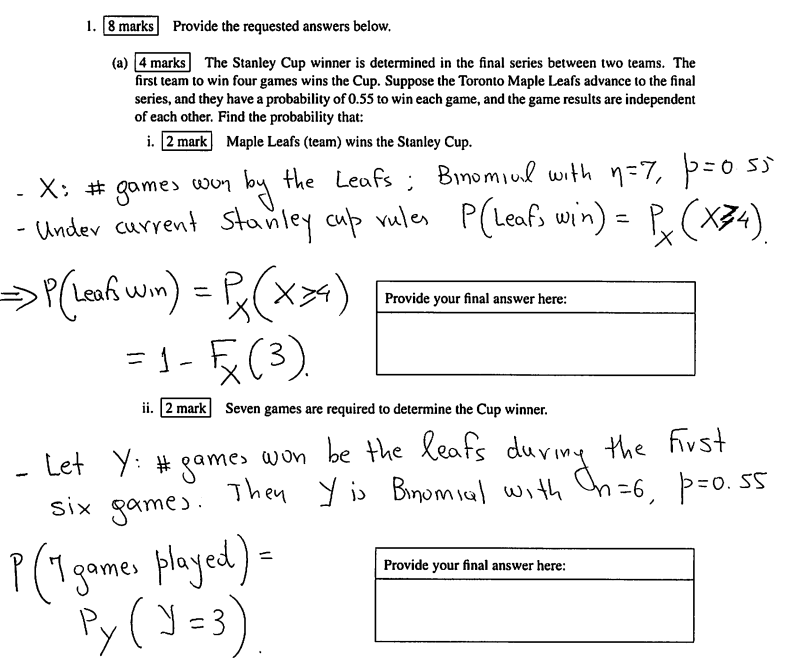 1. 8 marks Provide the requested answers below.
(a) 4 marks The Stanley Cup winner is determined in the final series between two teams. The
first team to win four games wins the Cup. Suppose the Toronto Maple Leafs advance to the final
series, and they have a probability of 0.55 to win each game, and the game results are independent
of each other. Find the probability that:
i. 2 mark Maple Leafs (team) wins the Stanley Cup.
- X: # games won by the Leafs ; Binomial with n=7, p=0 55
- Under current Stanley cup rules P(Leafs win) = P_X(X≥4).
⇒ P(Leafs win) = P_X(X≥4)
Provide your final answer here:
= 1 - F_X(3).
ii. 2 mark Seven games are required to determine the Cup winner.
- Let Y: # games won be the leafs during the first
six games. Then Y is Binomial with n=6, p=0.55
P(7 games played) =
Provide your final answer here:
P_Y(Y=3).